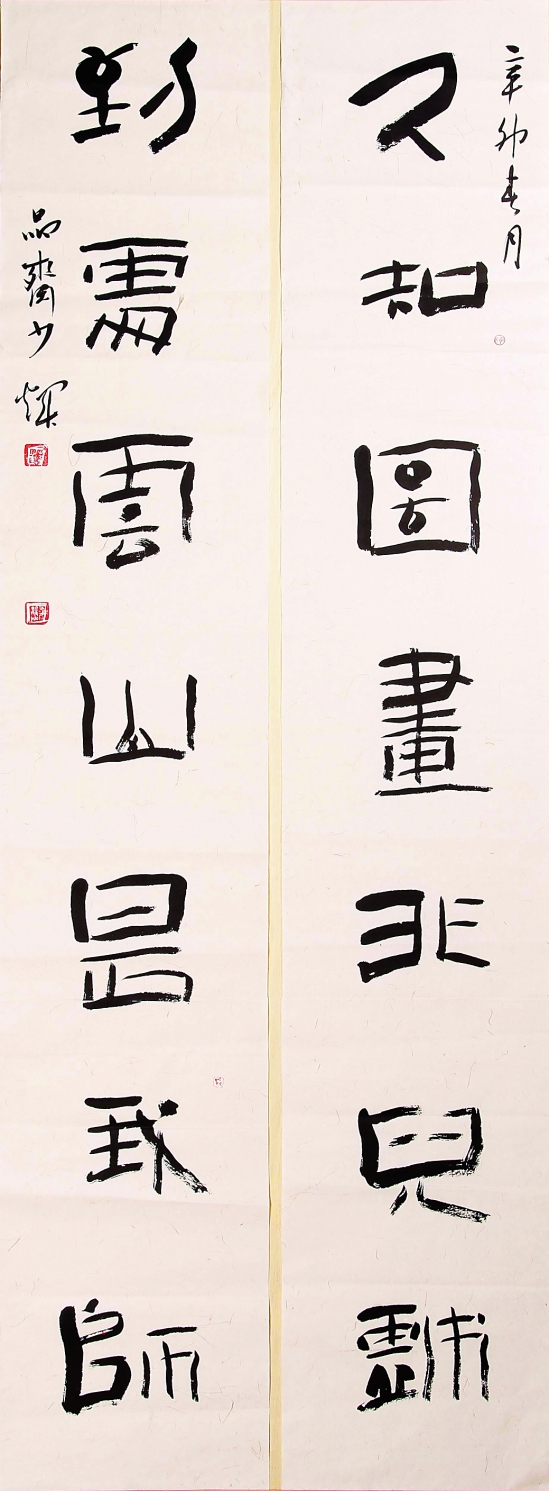 辛卯春月
久知圖畫非兒戲
到處雲山是我師
品齋少輝